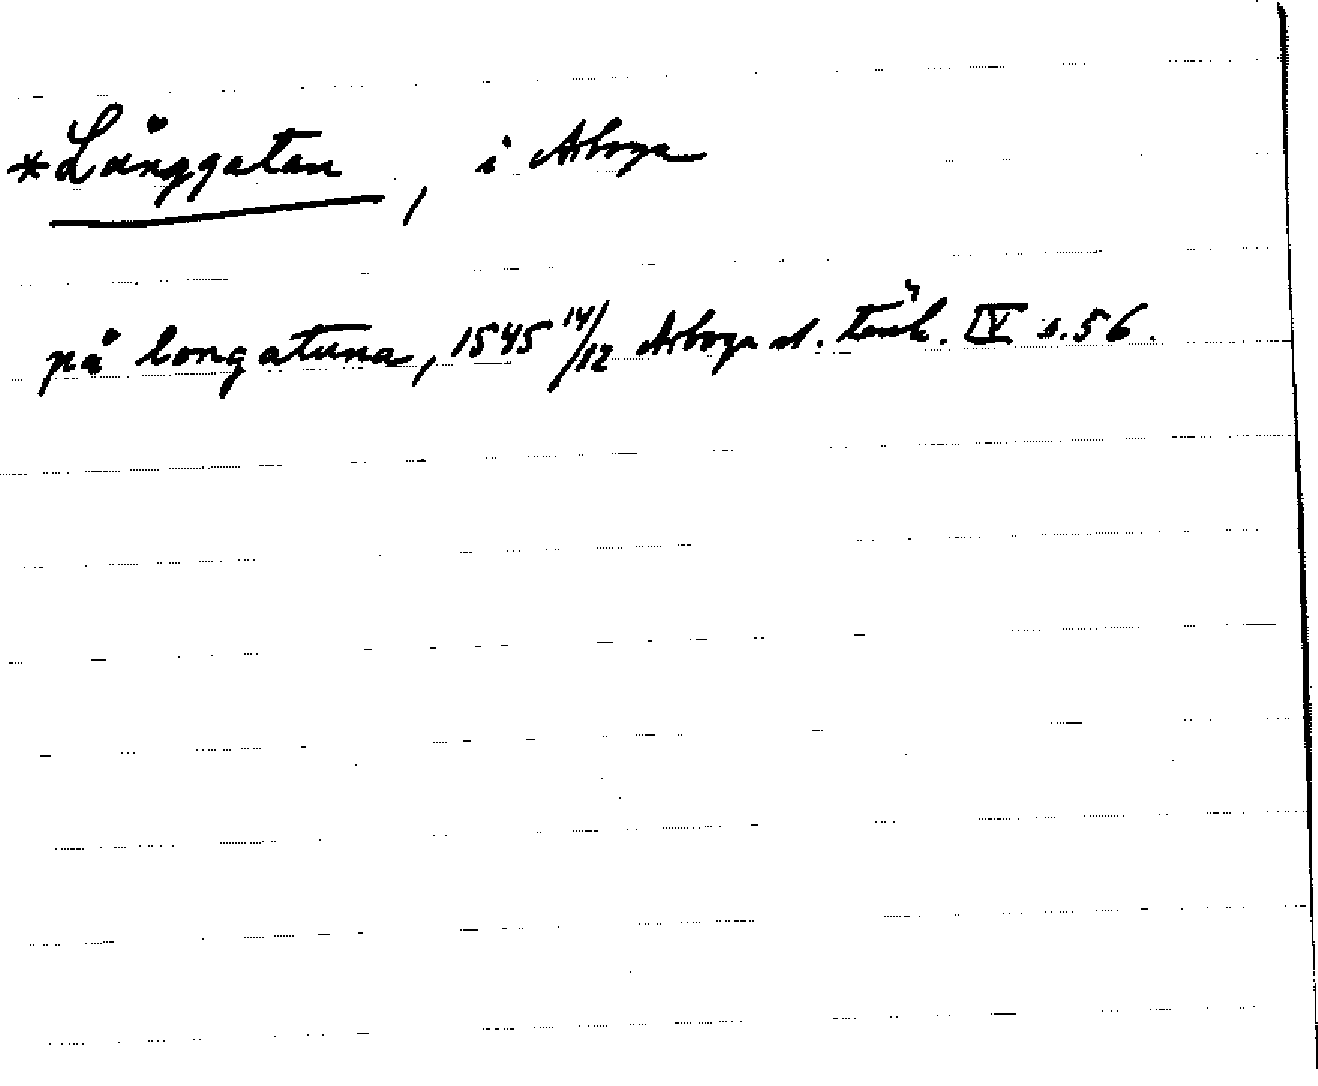 *Långgatan, i Arboga
på longatuna, 1545 14/12 Arboga st. tänk. IV s. 56.